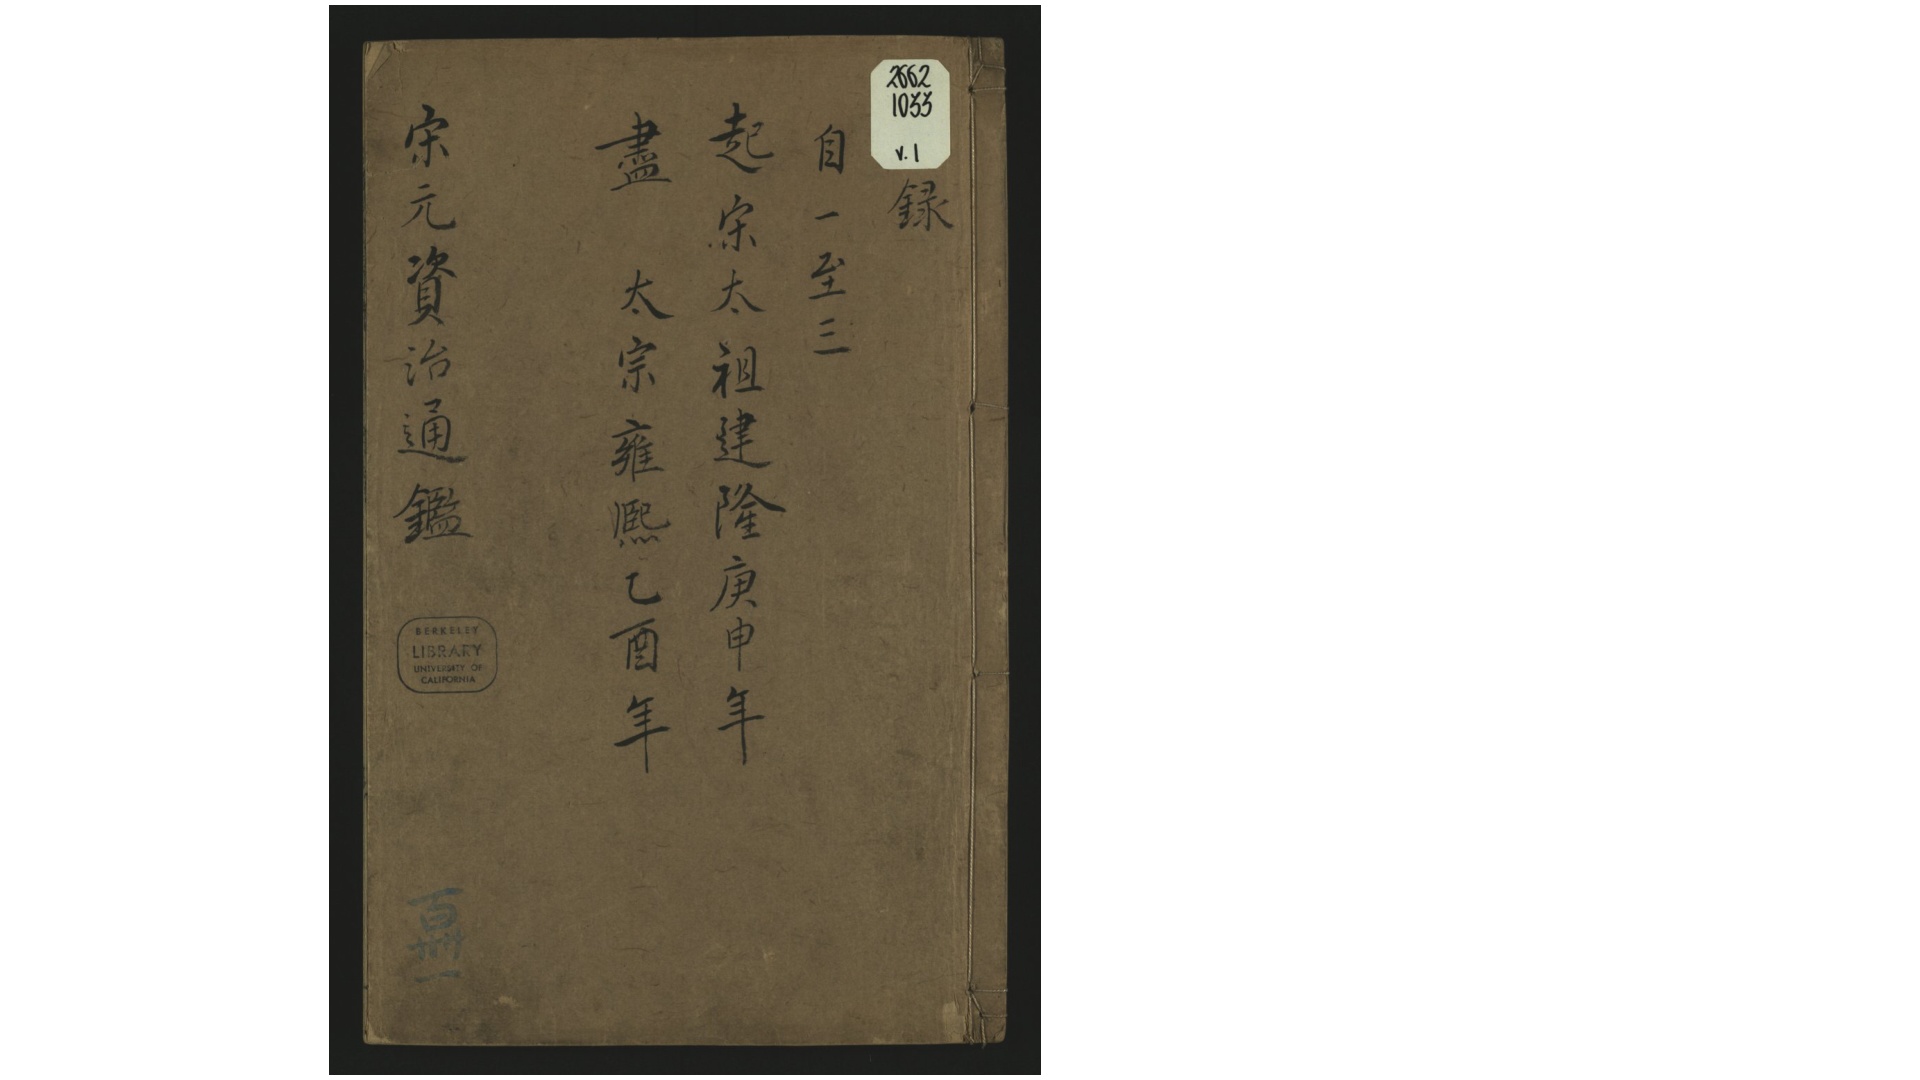 2662
1033
v.1
録
自一至三
起宋太祖建隆庚申年
盡 太宗雍熙乙酉年
宋元資治通鑑
BERKELEY
LIBRARY
UNIVERSITY OF
CALIFORNIA